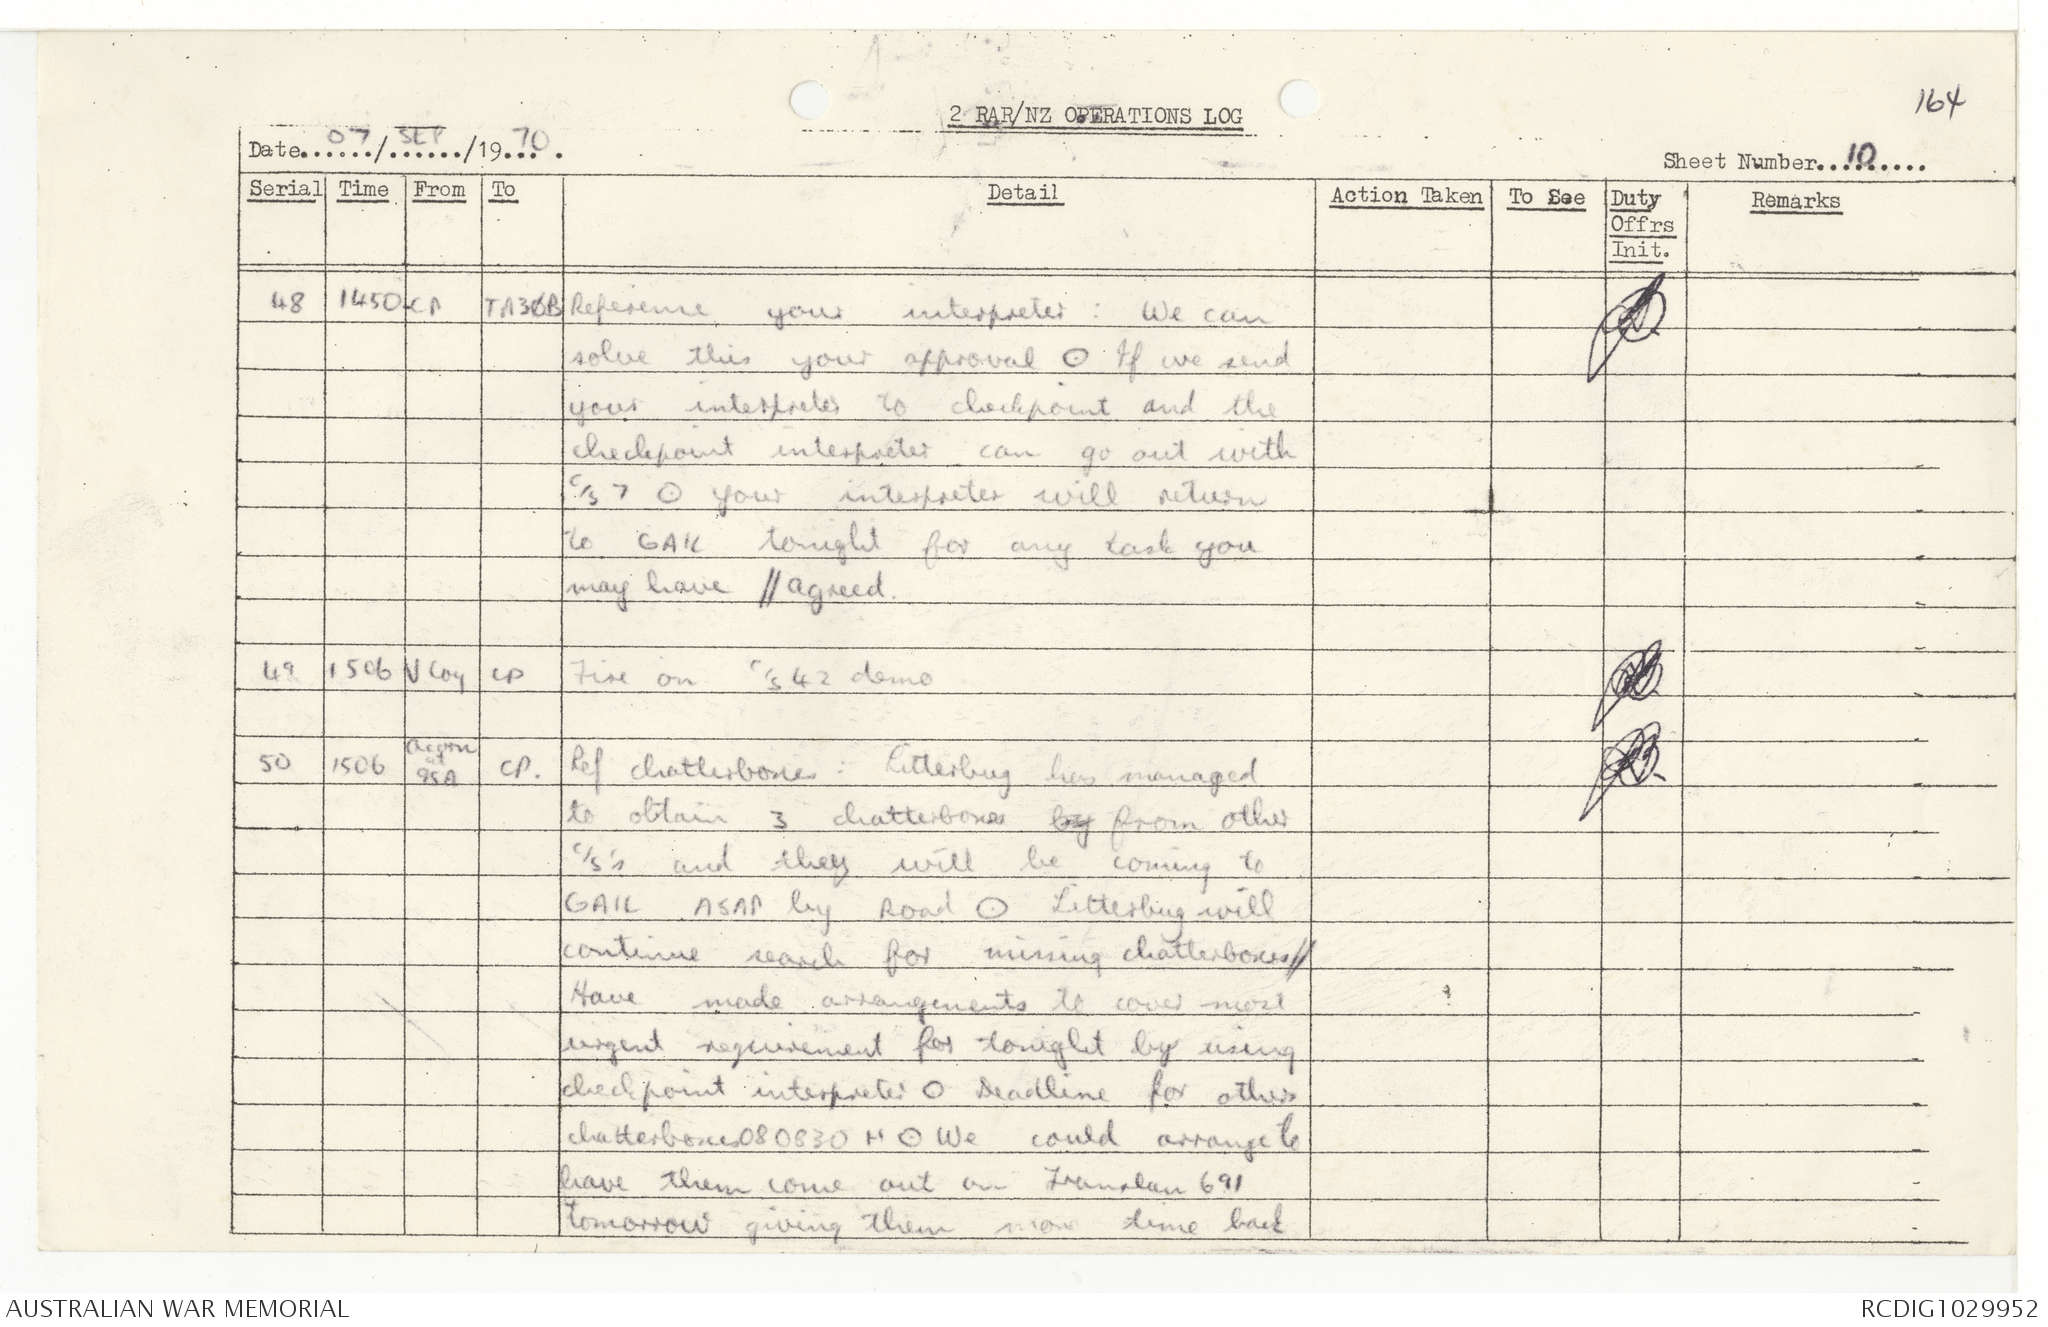 164
2 RAR/NZ OPERATIONS LOG
Date 07/SEP/1970.
Sheet Number 10
Serial Time From To Detail Action Taken To See Duty Offrs Init. Remarks
48 1450 CP Reference your interpreter : We can
solve this your approval ⊙ If we send
your interpreter to checkpoint and the
checkpoint interpreter can go out with
C/S 7 ⊙ your interpreter will return
to GAIL tonight for any task you
may have // agreed.
49 1506 V Coy CP Fire on C/S 42 demo
50 1506 Acorn at 95A CP. Ref chatterboxes : Litterbug has managed
to obtain 3 chatterboxes by from other
C/S's and they will be coming to
GAIL ASAP by Road ⊙ Litterbug will
continue search for missing chatterboxes //
Have made arrangements to cover most
urgent requirement for tonight by using
checkpoint interpreter ⊙ Deadline for others
chatterboxes 080830 H ⊙ We could arrange to
have them come out on 691
tomorrow giving them more time back
AUSTRALIAN WAR MEMORIAL
RCDIG1029952